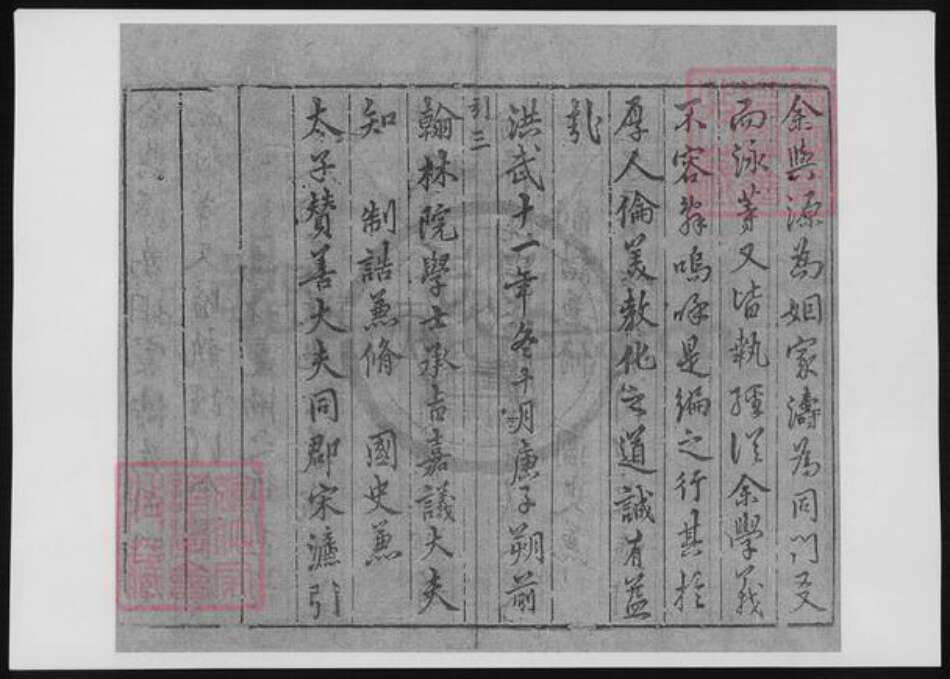 余與源為姻家濤為同門友
而泳等又皆執經從余學義
不容辭嗚呼是編之行其於
厚人倫美教化之道誠有益
哉
洪武十一年冬十一月庚子朔前
引三
翰林院學士承旨嘉議大夫
知 制誥兼脩 國史兼
太子贊善大夫同郡宋濂引